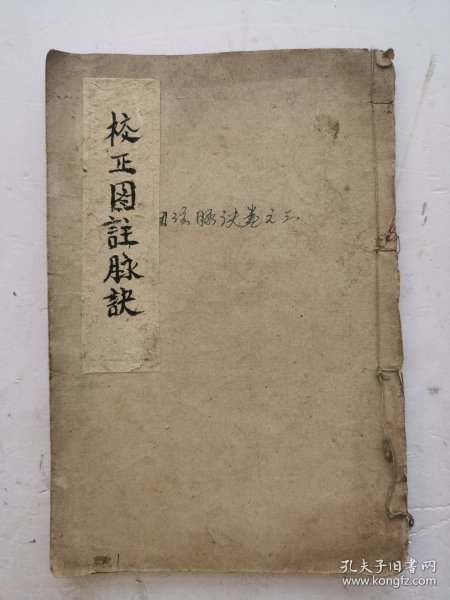 校正图註脉訣
图注脉诀卷之三
孔夫子旧书网
www.kongfz.com